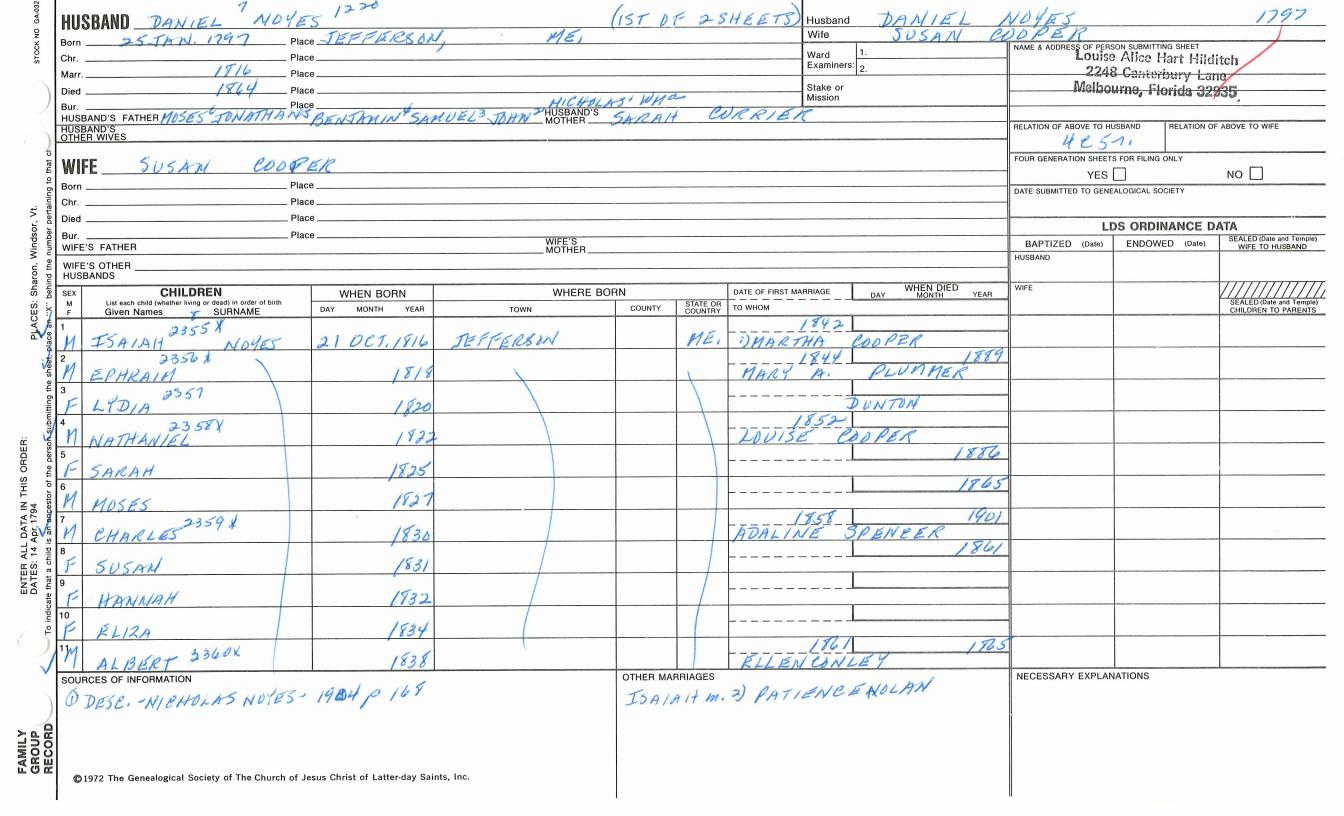 STOCK NO. GA-032
HUSBAND DANIEL 7 NOYES 1220 (1ST OF 2 SHEETS)
Born 25 JAN. 1797 Place JEFFERSON, ME,
Chr. Place
Marr. 1816 Place
Died 1864 Place
Bur. Place
NICHOLAS' WM
HUSBAND'S FATHER MOSES6 JONATHAN5 BENJAMIN4 SAMUEL3 JOHN2 HUSBAND'S MOTHER SARAH CURRIER
HUSBAND'S OTHER WIVES
Husband DANIEL NOYES 1797
Wife SUSAN COOPER
Ward Examiners: 1.
2.
Stake or Mission
NAME & ADDRESS OF PERSON SUBMITTING SHEET
Louise Alice Hart Hilditch
2248 Canterbury Lane
Melbourne, Florida 32935
RELATION OF ABOVE TO HUSBAND RELATION OF ABOVE TO WIFE
FOUR GENERATION SHEETS FOR FILING ONLY
YES NO
DATE SUBMITTED TO GENEALOGICAL SOCIETY
WIFE SUSAN COOPER
Born Place
Chr. Place
Died Place
Bur. Place
WIFE'S FATHER WIFE'S MOTHER
WIFE'S OTHER HUSBANDS
LDS ORDINANCE DATA
BAPTIZED (Date) ENDOWED (Date) SEALED (Date and Temple) WIFE TO HUSBAND
HUSBAND
WIFE
SEALED (Date and Temple) CHILDREN TO PARENTS
SEX M F
CHILDREN
List each child (whether living or dead) in order of birth
Given Names SURNAME
WHEN BORN
DAY MONTH YEAR
WHERE BORN
TOWN COUNTY STATE OR COUNTRY
DATE OF FIRST MARRIAGE
TO WHOM
WHEN DIED
DAY MONTH YEAR
1 M ISAIAH 2355X NOYES 21 OCT. 1816 JEFFERSON ME. 1842 1) MARTHA COOPER
2 M EPHRAIM 2356X 1818 1844 MARY A. PLUMMER 1889
3 F LYDIA 2357 1820 DUNTON
4 M NATHANIEL 2358X 1822 1852 LOUISE COOPER
5 F SARAH 1825 1886
6 M MOSES 1827 1865
7 M CHARLES 2359X 1830 1858 ADALINE SPENCER 1901
8 F SUSAN 1831 1861
9 F HANNAH 1832
10 F ELIZA 1834
11 M ALBERT 2360X 1838 1861 ELLEN CONLEY 1865
SOURCES OF INFORMATION
① DESC. - NICHOLAS NOYES - 1904 p 168
OTHER MARRIAGES
ISAIAH m. 2) PATIENCE NOLAN
NECESSARY EXPLANATIONS
©1972 The Genealogical Society of The Church of Jesus Christ of Latter-day Saints, Inc.
FAMILY GROUP RECORD
ENTER ALL DATA IN THIS ORDER:
DATES: 14 Apr. 1794
PLACES: Sharon, Windsor, Vt.
To indicate that a child is an ancestor of the person submitting the sheet, place an "X" behind the number pertaining to that